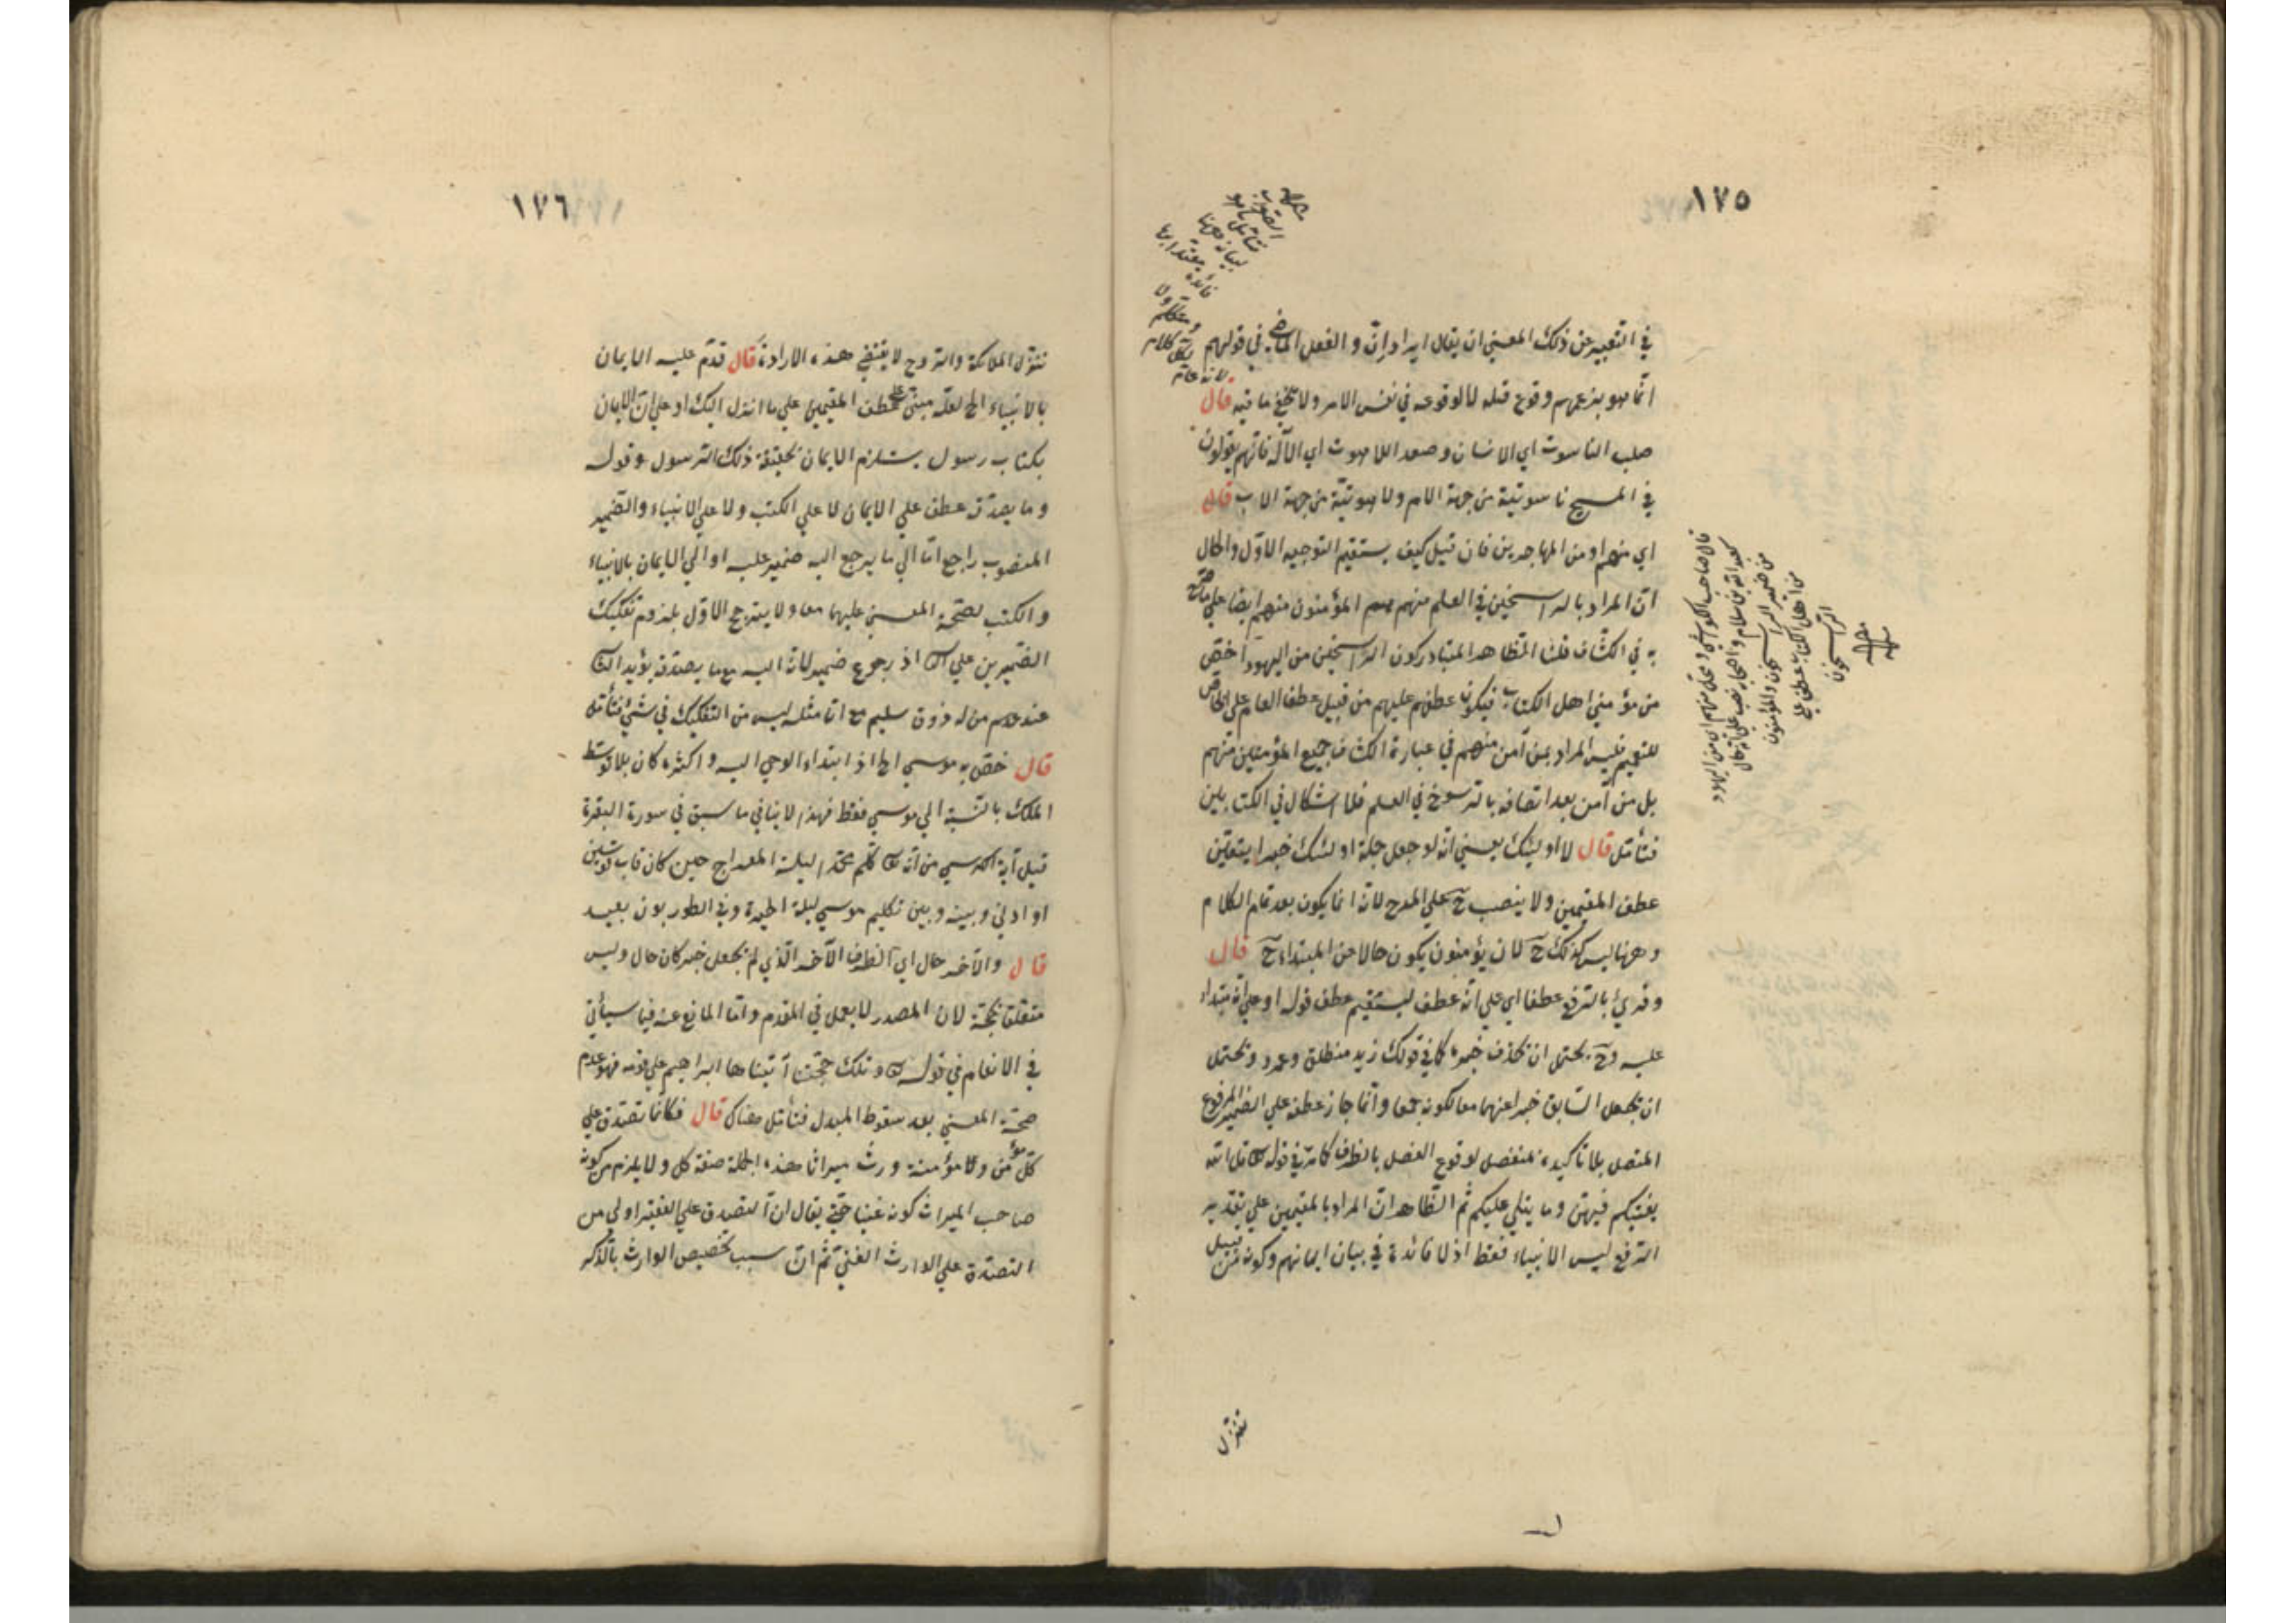 ١٧٥
في التعبير عن ذلك المعنى ان يقال ايراد إنّ و الفعل الماضي في قولهم
انما هو بزعمهم وقوع قتله لا لوقوعه في نفس الامر ولا يخفى ما فيه قال
صلب الناسوت اي الانسان وصعد اللاهوت اي الآله فانهم يقولون
في المسيح ناسوتية من جهة الام ولاهوتية من جهة الاب قال
اي منهم او من المهاجرين فان قيل كيف يستقيم التوجيه الاوّل والحال
انّ المراد بالراسخين في العلم منهم هم المؤمنون منهم ايضا على ما صرّح
به في الكشاف قلنا الظاهر المتبادر كون الراسخين من اليهود اخصّ
من مؤمني اهل الكتاب فيكون عطفهم عليهم من قبيل عطف العام على الخاص
للتعميم فليس المراد بمن آمن منهم في عبارة الكشاف جميع المؤمنين منهم
بل من آمن بعد اتصافه بالرسوخ في العلم فلا اشكال في الكتابين
فتأمّل قال لا اولئك يعني انه لو جعل جملة اولئك خبرا يتعيّن
عطف المقيمين ولا ينصب ح على المدح لانه انما يكون بعد تمام الكلام
وههنا ليس كذلك ح لان يؤمنون يكون حالا من المبتداء ح قال
وقرئ بالرفع عطفا اي على انه عطف ليستقيم عطف قوله او على انه مبتداء
عليه وح يحتمل ان يحذف خبره كما في قولك زيد منطلق وعمرو ويحتمل
ان يجعل السابق خبرا عنهما معا لكونه جمعا وانما جاز عطفه على الضمير المرفوع
المتصل بلا تأكيده بمنفصل لوقوع الفصل بالظرف كما مرّ في قوله تعا قل الله
يفتيكم فيهن وما يتلى عليكم ثم الظاهر انّ المراد بالمقيمين على تقدير
الرفع ليس الانبياء فقط اذ لا فائدة في بيان ايمانهم وكونه من قبيل
تنزل
قال صاحب الكواشي
من ضمير الراسخون والمؤمنون
من اهل الكتاب عطف على
الراسخون
١٧٦
تنزّل الملائكة والروح لا يقتضي هذه الارادة قال قدّم عليه الايمان
بالانبياء الخ لعلّه مبنيّ على عطف المقيمين على ما انزل اليك او على انّ الايمان
بكتاب رسول يستلزم الايمان بحقيقة ذلك الرسول وقوله
وما يصدّقه عطف على الايمان لا على الكتب ولا على الانبياء والضمير
المنصوب راجع امّا الى ما يرجع اليه ضمير عليه او الى الايمان بالانبياء
والكتب لصحّة المعنى عليهما معا ولا يترجح الاوّل بلزوم تفكيك
الضميرين على الثا اذ رجوع ضمير لانه اليه مع ما يصدقه يؤيد الثا
عند من له ذوق سليم مع انّ مثله ليس من التفكيك في شئ فتأمّل
قال خصّ به موسى الخ اذ ابتداء الوحي اليه واكثره كان بلا توسّط
الملك بالنسبة الى موسى فقط فهذا لا ينافي ما سبق في سورة البقرة
قبل آية الكرسي من انه تعا كلّم محمّدا ليلة المعراج حين كان قاب قوسين
او ادنى وبينه وبين تكليم موسى ليلة الحيرة وفي الطور بون بعيد
قال والآخر حال اي الظرف الآخر الذي لم يجعل خبر كان حال وليس
متعلّق بحجّة لان المصدر لا يعمل في المقدم وامّا المانع عنه فيما سيأتي
في الانعام في قوله تعا وتلك حجّتنا آتيناها ابراهيم على قومه فهو عدم
صحّة المعنى بعد سقوط المبدل فتأمّل هناك قال فكأنما تصدّق على
كلّ مؤمن ومؤمنة ورث ميراثا هذه الجملة صفة كل ولا يلزم من كونه
صاحب الميراث كونه غنيا حتى يقال ان التصدق على الفقير اولى من
التصدق على الوارث الغني ثم انّ سبب تخصيص الوارث بالذكر